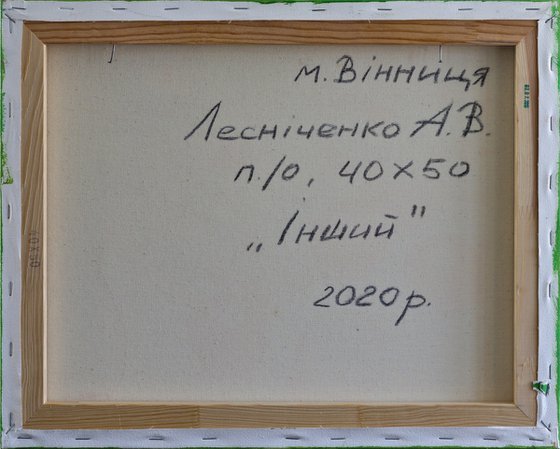 м. Вінниця
Лесніченко А.В.
п./о, 40х50
„Інший"
2020р.
40х50